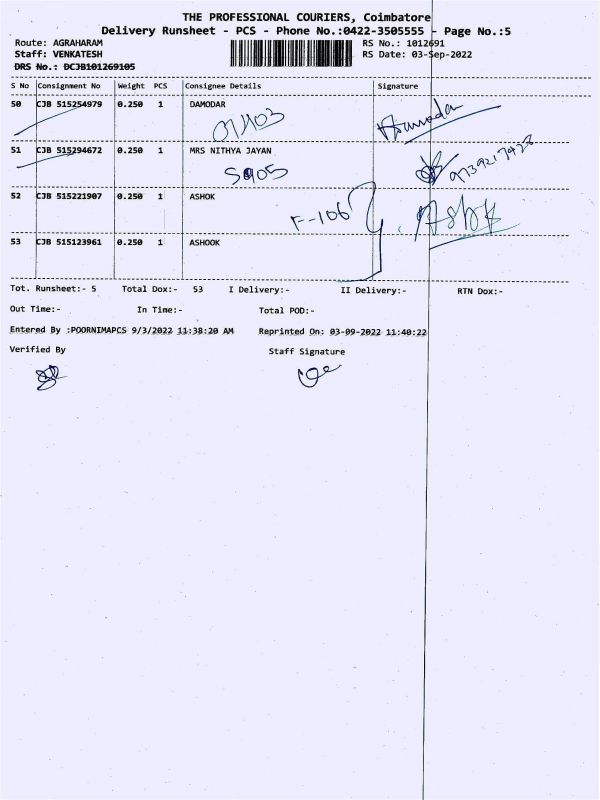 THE PROFESSIONAL COURIERS, Coimbatore
Delivery Runsheet - PCS - Phone No.:0422-3505555 - Page No.:5
Route: AGRAHARAM
RS No.: 1012691
Staff: VENKATESH
RS Date: 03-Sep-2022
DRS No.: DCJB101269105
S No Consignment No Weight PCS Consignee Details Signature
50 CJB 515254979 0.250 1 DAMODAR
51 CJB 515294672 0.250 1 MRS NITHYA JAYAN
S905
52 CJB 515221907 0.250 1 ASHOK
F-106
Ashok
53 CJB 515123961 0.250 1 ASHOOK
Tot. Runsheet:- 5 Total Dox:- 53 I Delivery:- II Delivery:- RTN Dox:-
Out Time:- In Time:- Total POD:-
Entered By :POORNIMAPCS 9/3/2022 11:38:20 AM Reprinted On: 03-09-2022 11:40:22
Verified By Staff Signature